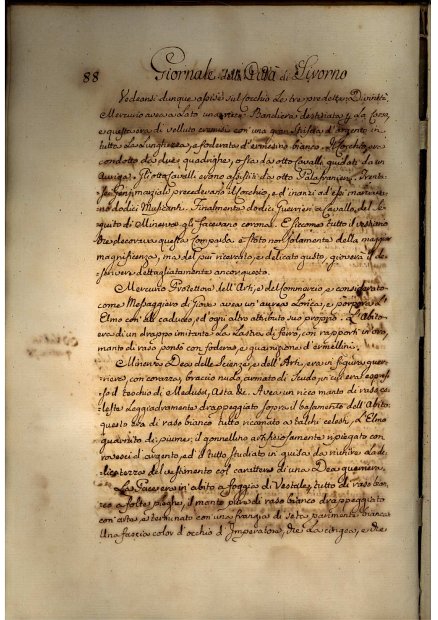 88 Giornale della Città di Livorno
Vedeansi dunque assise sul Cocchio le tre predette Divinità,
Mercurio avea a lato una ricca Bandiera destinata p. la Corsa,
e questa era di velluto cremisi con una gran striscia d'argento in
tutta la lunghezza, e foderata d'ermesino bianco. Il Cocchio era
condotto da due quadrighe, o sia da otto Cavalli guidati da un
Auriga. Gli otto Cavalli erono assistiti da otto Palafrenieri. Trenta
sei Geni marziali precedevano il Cocchio, e d'inanzi ad essi marciava
no dodici Musicanti. Finalmente dodici Guerrieri a Cavallo, del se
guito di Minerva gli facevano corona. E siccome tutto il vestiario
che decorava questa Comparsa è stato non solamente della maggior
magnificenza, ma del più ricercato, e delicato gusto, gioverà il de
scriverlo dettagliatamente ancor questo.
Mercurio Protettore dell'Arti, e del Commercio e considerato
come Messaggiero di Giove avea un'aurea Lorica, e porpora l'
Elmo con ali caduceo, ed ogni altro attributo suo proprio. L'Abito
era di un drappo imitante la lastra di ferro, con rapporti in oro,
manto di raso ponsò con fodera, e guarnizione d'ermellini.
Minerva Dea delle Scienze, e dell'Arti, era in figura guer
riera, con corazza, braccio nudo, armato di Scudo, in cui era espres
so il teschio di Medusa, Asta &c. Avea un ricco manto di raso ce
leste leggiadramente drappeggiato sopra il basamento dell'Abito:
questo era di raso bianco tutto ricamato a talchi celesti, l'Elmo
guarnito di piume, il gonnellino artifiziosamente ripiegato con
rovesci d'argento, ed il tutto studiato in guisa da unire la de
licatezza del vestimento col carattere di una Dea guerriera.
La Pace era in abito a foggia di Vestale, tutto di raso bian
co a folte pieghe, il manto pure di raso bianco drappeggiato
con arte, e terminato con una frangia di seta parimente bianca.
Una fascia color d'occhio d'Imperatore, che la cingea, e che